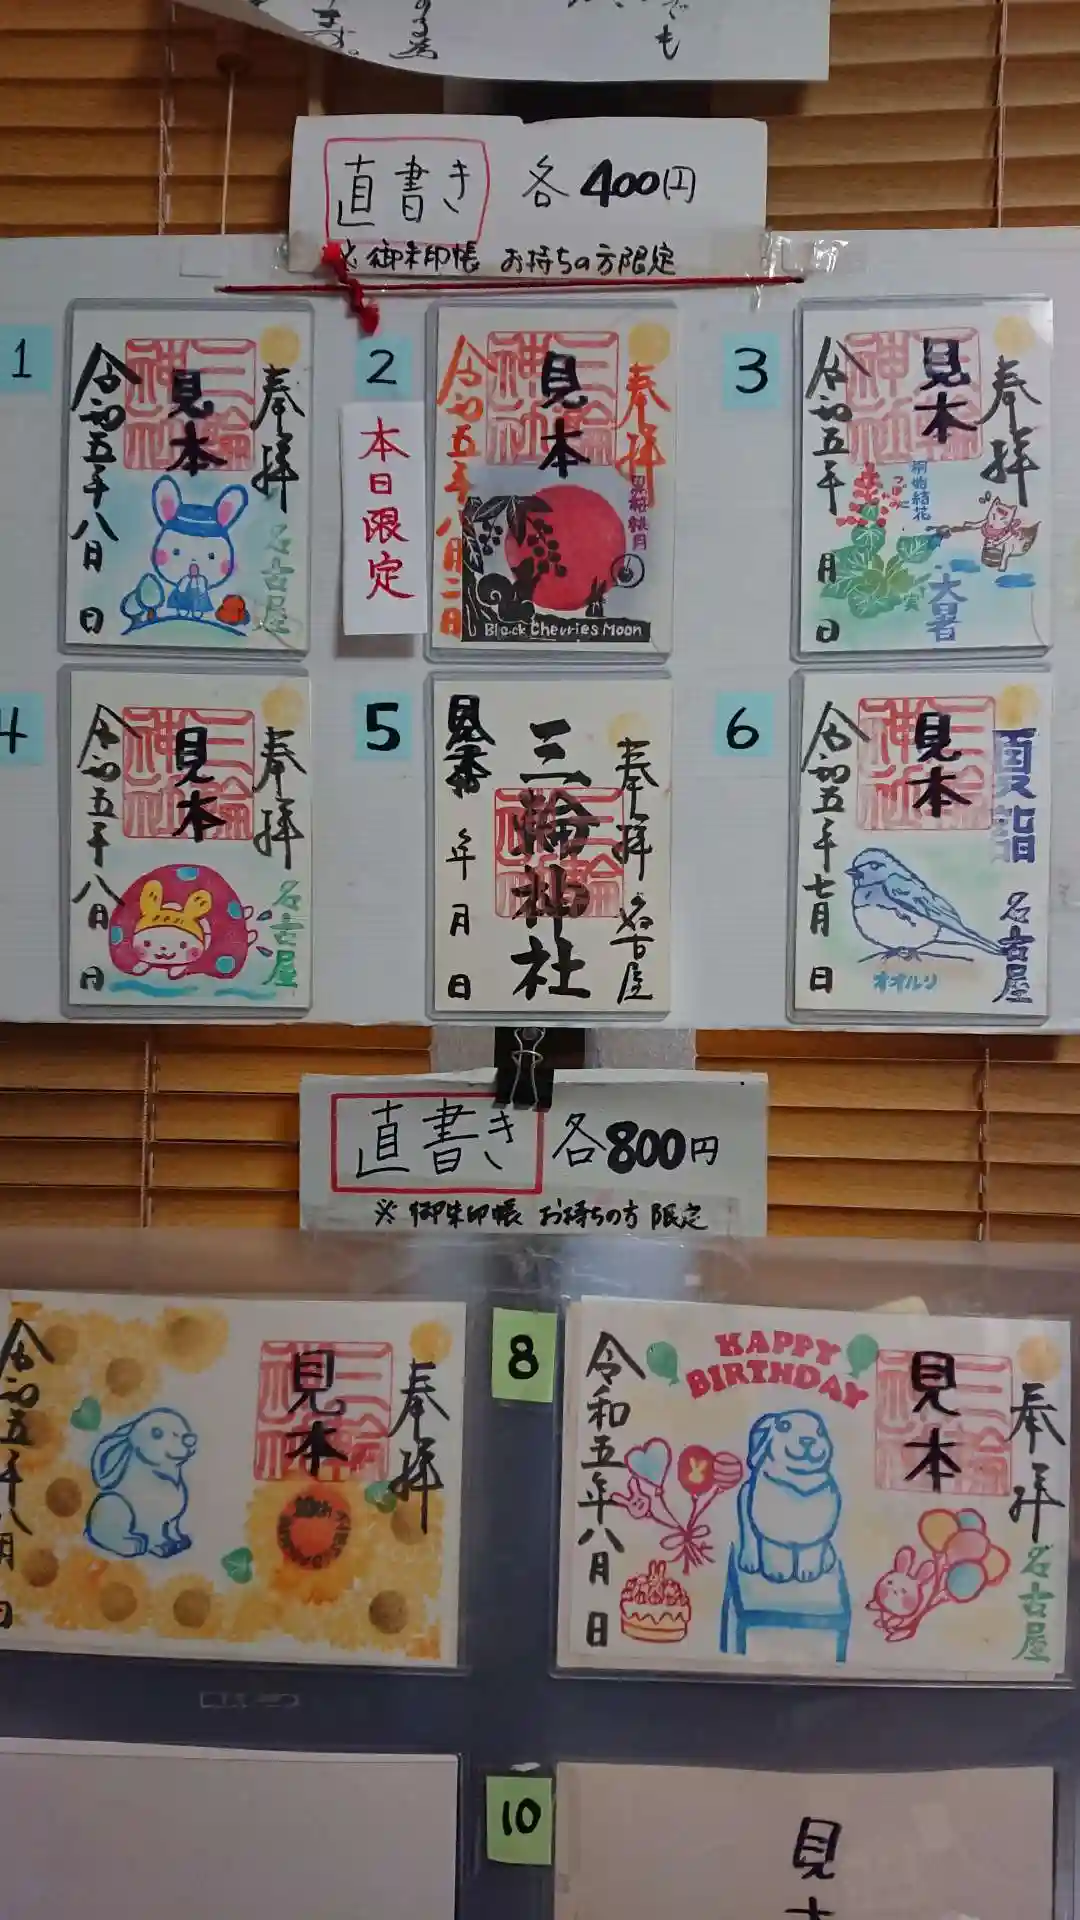 直書き 各400円
※御朱印帳 お持ちの方限定
1
奉拝
見本
三輪神社
名古屋
令和五年八月 日
2
本日限定
奉拝
見本
三輪神社
令和五年八月二日
Black Cherries Moon
3
奉拝
見本
三輪神社
桐始結花
大暑
令和五年 月 日
4
奉拝
見本
三輪神社
名古屋
令和五年八月 日
5
奉拝
名古屋
三輪神社
見本
年 月 日
6
夏詣
名古屋
見本
三輪神社
オオルリ
令和五年七月 日
直書き 各800円
※御朱印帳 お持ちの方限定
奉拝
見本
三輪神社
令和五年八月 日
8
HAPPY
BIRTHDAY
奉拝
名古屋
見本
三輪神社
令和五年八月 日
10
見